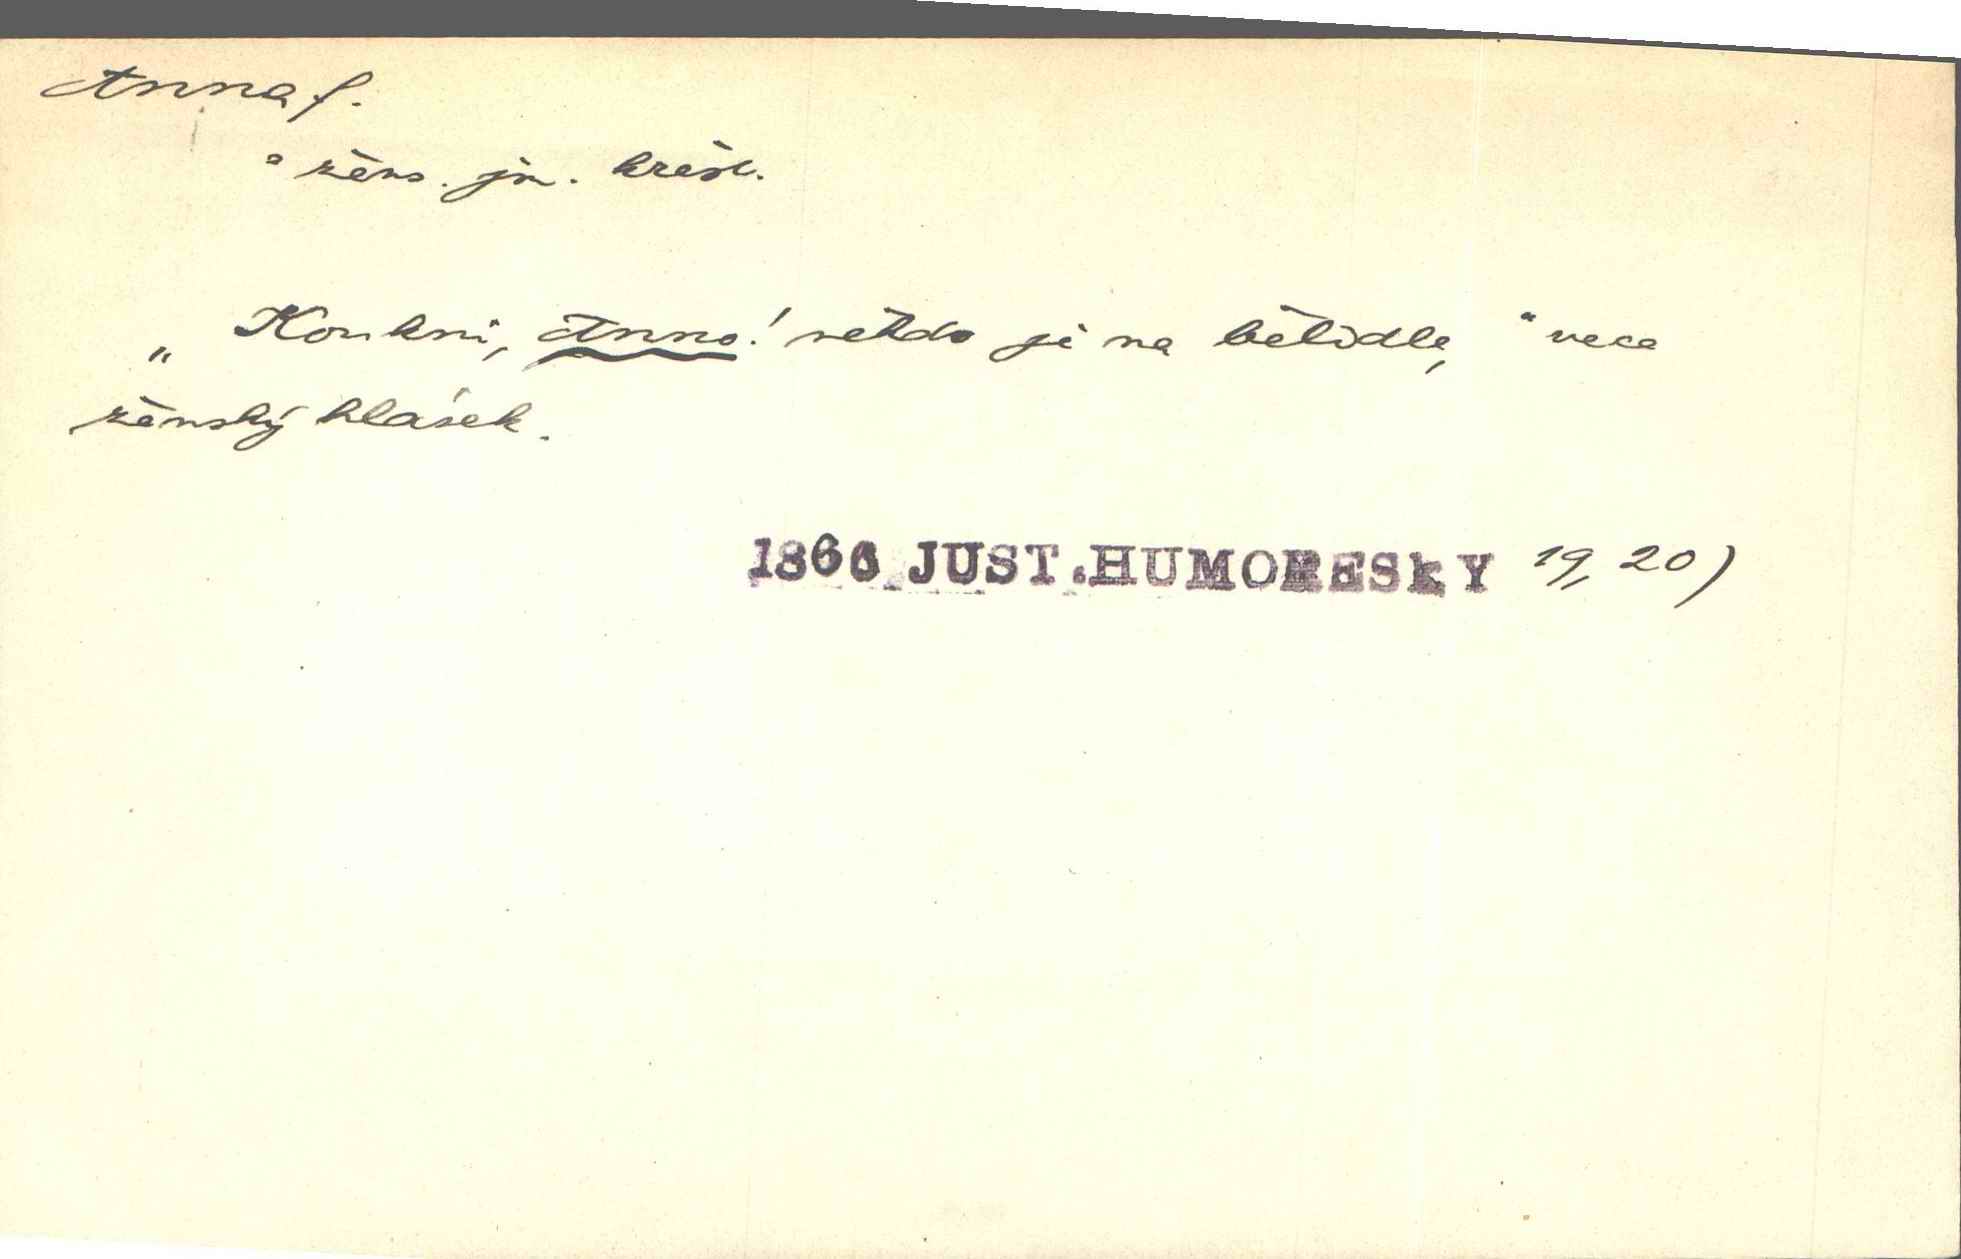 Anna f.
° žens. jm. křest.
„Koukni, Anno! někdo je na bělidle,“ vece
ženský hlásek.
1866 JUST. HUMORESKY 19, 20)